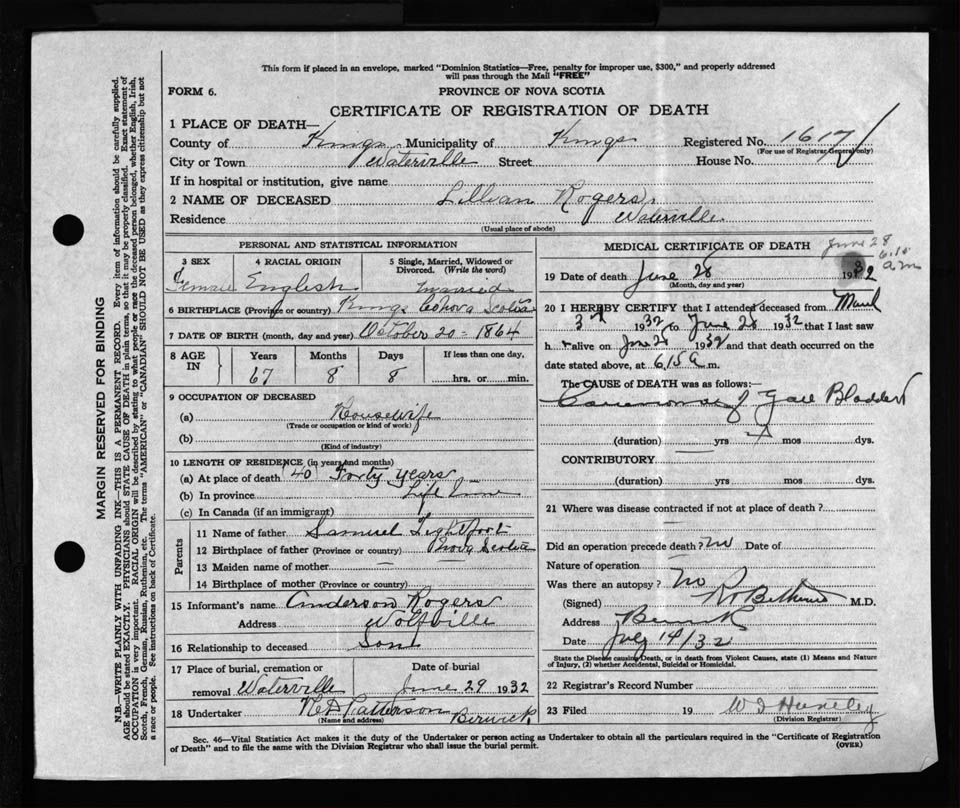 This form if placed in an envelope, marked "Dominion Statistics—Free, penalty for improper use, $300," and properly addressed
will pass through the Mail "FREE"
FORM 6.
PROVINCE OF NOVA SCOTIA
CERTIFICATE OF REGISTRATION OF DEATH
1 PLACE OF DEATH—
County of Kings Municipality of Kings Registered No. 1617
(For use of Registrar General only)
City or Town Waterville Street House No.
If in hospital or institution, give name
2 NAME OF DECEASED Lillian Rogers
Residence Waterville
(Usual place of abode)
PERSONAL AND STATISTICAL INFORMATION
3 SEX 4 RACIAL ORIGIN 5 Single, Married, Widowed or Divorced. (Write the word)
Female English Married
6 BIRTHPLACE (Province or country) Kings Co Nova Scotia
7 DATE OF BIRTH (month, day and year) October 20 - 1864
8 AGE IN Years Months Days If less than one day,
67 8 8 hrs. or min.
9 OCCUPATION OF DECEASED
(a) Housewife
(Trade or occupation or kind of work)
(b)
(Kind of industry)
10 LENGTH OF RESIDENCE (in years and months)
(a) At place of death (40) Forty years
(b) In province Life time
(c) In Canada (if an immigrant)
Parents
11 Name of father Samuel Lightfoot
12 Birthplace of father (Province or country) Nova Scotia
13 Maiden name of mother —
14 Birthplace of mother (Province or country) —
15 Informant's name Anderson Rogers
Address Wolfville
16 Relationship to deceased Son
17 Place of burial, cremation or removal Waterville Date of burial June 29 1932
18 Undertaker Patterson Berwick
(Name and address)
MEDICAL CERTIFICATE OF DEATH
June 28
6.15
a.m
19 Date of death June 28 1932
(Month, day and year)
20 I HEREBY CERTIFY that I attended deceased from March
3 1932 to June 28 1932 that I last saw
h r alive on June 28 1932 and that death occurred on the
date stated above, at 6 15 a m.
The CAUSE OF DEATH was as follows:—
Carcinoma of Gall Bladder
(duration) yrs mos dys.
CONTRIBUTORY
(duration) yrs mos dys.
21 Where was disease contracted if not at place of death?
Did an operation precede death? no Date of
Nature of operation
Was there an autopsy? no
(Signed) M.D.
Address Berwick
Date July 14/32
State the Disease causing Death, or in death from Violent Causes, state (1) Means and Nature
of Injury, (2) whether Accidental, Suicidal or Homicidal.
22 Registrar's Record Number
23 Filed 19
(Division Registrar)
Sec. 46—Vital Statistics Act makes it the duty of the Undertaker or person acting as Undertaker to obtain all the particulars required in the "Certificate of Registration
of Death" and to file the same with the Division Registrar who shall issue the burial permit.
(OVER)
MARGIN RESERVED FOR BINDING
N.B.—WRITE PLAINLY WITH UNFADING INK—THIS IS A PERMANENT RECORD. Every item of information should be carefully supplied.
AGE should be stated EXACTLY. PHYSICIANS should STATE CAUSE OF DEATH in plain terms, so that it may be properly classified. Exact statement of
OCCUPATION is very important. RACIAL ORIGIN will be described by stating to what people or race the deceased person belonged, whether English, Irish,
Scotch, French, German, Russian, Ruthenian, etc. The terms "AMERICAN" or "CANADIAN" SHOULD NOT BE USED as they express citizenship but not
a race or people. See instructions on back of Certificate.